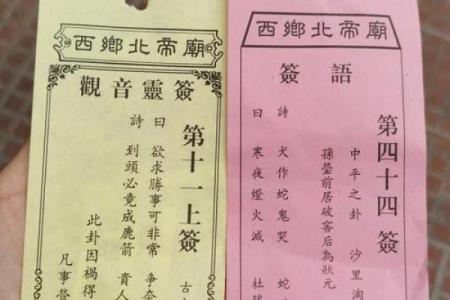 西鄉北帝廟
觀音靈簽
第十一上簽
古
詩曰
欲求勝事可非常 爭奈
到頭必竟成鹿箭 貴人
此卦因禍得
凡事營
西鄉北帝廟
簽語
第四十四簽
中平之卦 沙里淘
孫臺前居破窑后為狀元
詩曰
犬作蛇鬼哭 蛇
寒夜燈火滅 杜